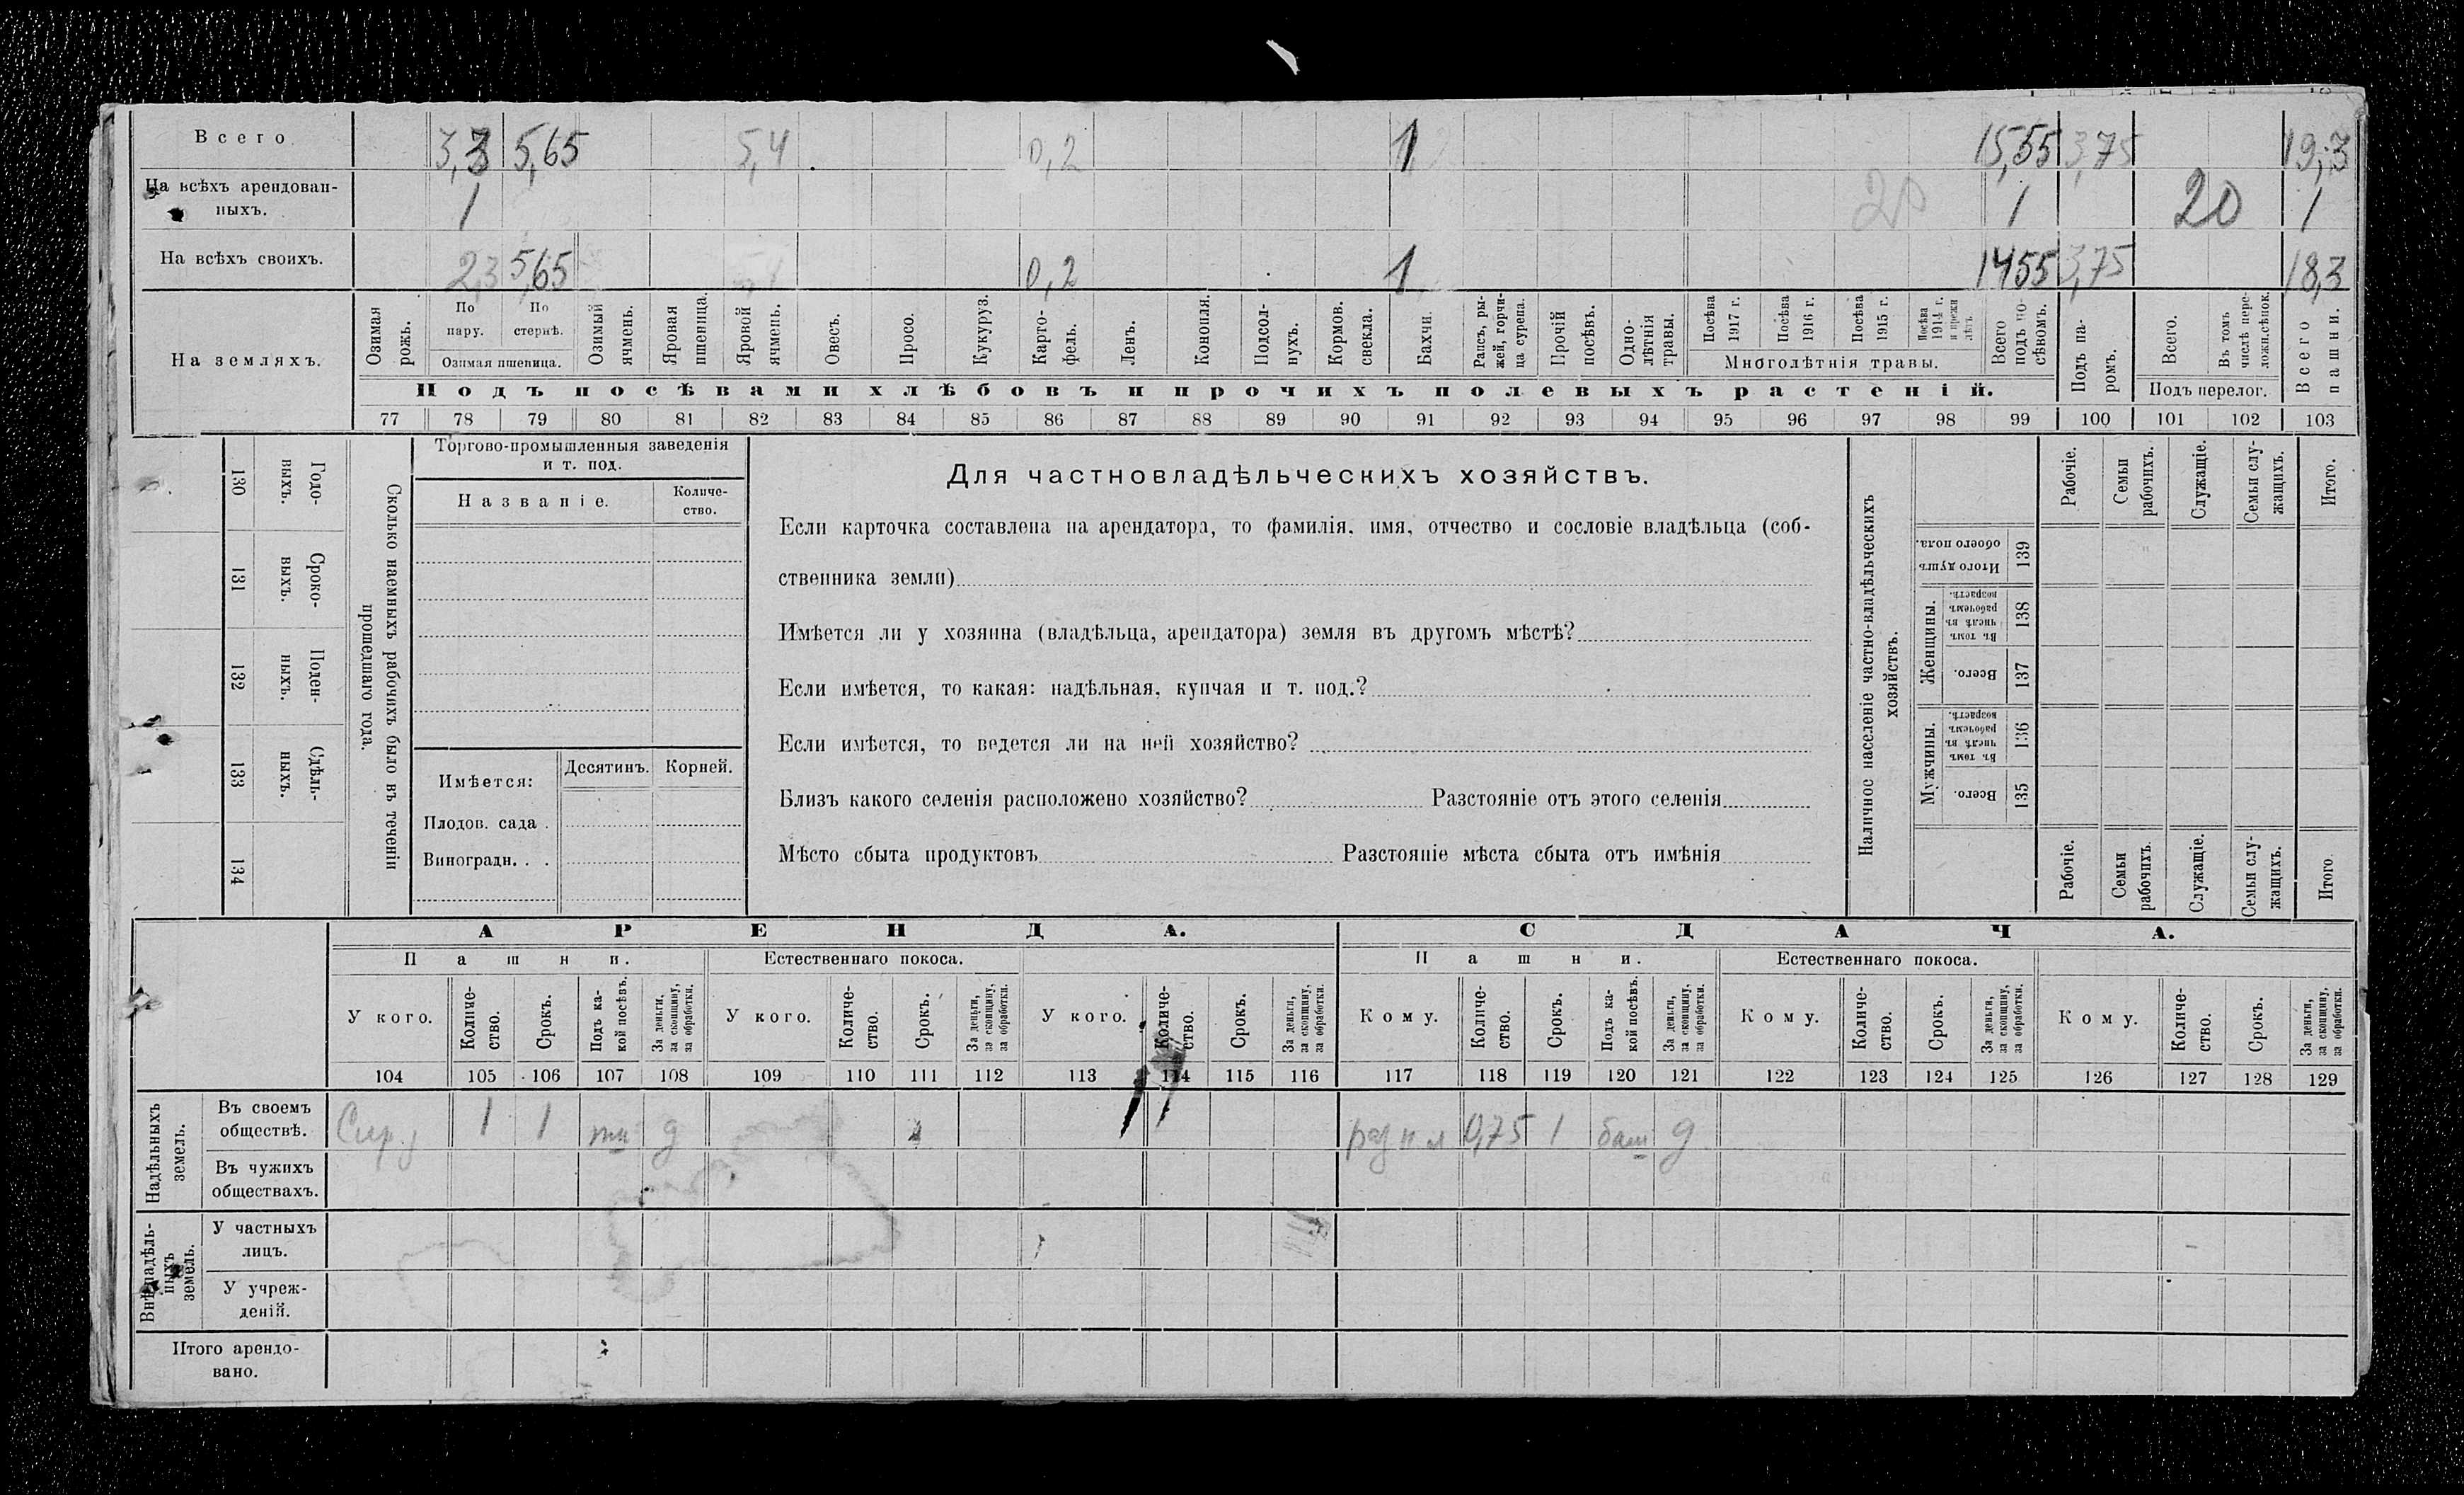 Всего 3,3 5,65 5,4 0,2 1 15,55 3,75 19,3
На всѣхъ арендован-
ныхъ. 1 20 1 20 1
На всѣхъ своихъ. 2,3 5,65 5,4 0,2 1 1455 3,75 18,3
На земляхъ.
Озимая рожь.
По пару.
По стернѣ.
Озимая пшеница.
Озимый ячмень.
Яровая пшеница.
Яровой ячмень.
Овесъ.
Просо.
Кукуруз.
Карто-
фель.
Ленъ.
Конопля.
Подсол-
нухъ.
Кормов. свекла.
Бахчи.
Рапсъ, ры-
жей, горчи-
ца сурепа.
Прочій посѣвъ.
Одно-
лѣтнія травы.
Посѣва 1917 г.
Посѣва 1916 г.
Посѣва 1915 г.
Посѣва 1914 г. и прежн лѣтъ.
Многолѣтнія травы.
Всего подъ по-
сѣвомъ.
Подъ па-
ромъ.
Всего.
Въ томъ числѣ пере-
ложн.сѣнок.
Подъ перелог.
Всего пашни.
Подъ посѣвами хлѣбовъ и прочихъ полевыхъ растеній.
77 78 79 80 81 82 83 84 85 86 87 88 89 90 91 92 93 94 95 96 97 98 99 100 101 102 103
130 Годо-
выхъ.
131 Сроко-
выхъ.
132 Поден-
ныхъ.
133 Сдѣль-
ныхъ.
134
Сколько наемныхъ рабочихъ было въ теченіи
прошедшаго года.
Торгово-промышленныя заведенія
и т. под.
Названіе.
Количе-
ство.
Имѣется: Десятинъ. Корней.
Плодов. сада .
Виноградн. . .
Для частновладѣльческихъ хозяйствъ.
Если карточка составлена на арендатора, то фамилія, имя, отчество и сословіе владѣльца (соб-
ственника земли)
Имѣется ли у хозяина (владѣльца, арендатора) земля въ другомъ мѣстѣ?
Если имѣется, то какая: надѣльная, купчая и т. под.?
Если имѣется, то ведется ли на ней хозяйство?
Близъ какого селенія расположено хозяйство? Разстояніе отъ этого селенія
Мѣсто сбыта продуктовъ Разстояніе мѣста сбыта отъ имѣнія
Наличное населеніе частно-владѣльческихъ
хозяйствъ.
Рабочіе.
Семьи рабочихъ.
Служащіе.
Семьи слу-
жащихъ.
Итого.
Итого душъ обоего пола. 139
Женщины.
Въ томъ числѣ въ рабочемъ возрастѣ. 138
Всего. 137
Мужчины.
Въ томъ числѣ въ рабочемъ возрастѣ. 136
Всего. 135
Рабочіе.
Семьи рабочихъ.
Служащіе.
Семьи слу-
жащихъ.
Итого
АРЕНДА. СДАЧА.
Пашни. Естественнаго покоса. Пашни. Естественнаго покоса.
У кого.
Количе-
ство.
Срокъ.
Подъ ка-
кой посѣвъ.
За деньги, за скопщину, за обработки.
У кого.
Количе-
ство.
Срокъ.
За деньги, за скопщину, за обработки.
У кого.
Количе-
ство.
Срокъ.
За деньги, за скопщину, за обработки.
Кому.
Количе-
ство.
Срокъ.
Подъ ка-
кой посѣвъ.
За деньги, за скопщину, за обработки.
Кому.
Количе-
ство.
Срокъ.
За деньги, за скопщину, за обработки.
Кому.
Количе-
ство.
Срокъ.
За деньги, за скопщину, за обработки.
104 105 106 107 108 109 110 111 112 113 114 115 116 117 118 119 120 121 122 123 124 125 126 127 128 129
Надѣльныхъ
земель.
Въ своемъ
обществѣ. 1 1 д 0,75 1 баш д
Въ чужихъ
обществахъ.
Внѣнадѣль-
ныхъ
земель.
У частныхъ
лицъ.
У учреж-
деній.
Итого арендо-
вано.